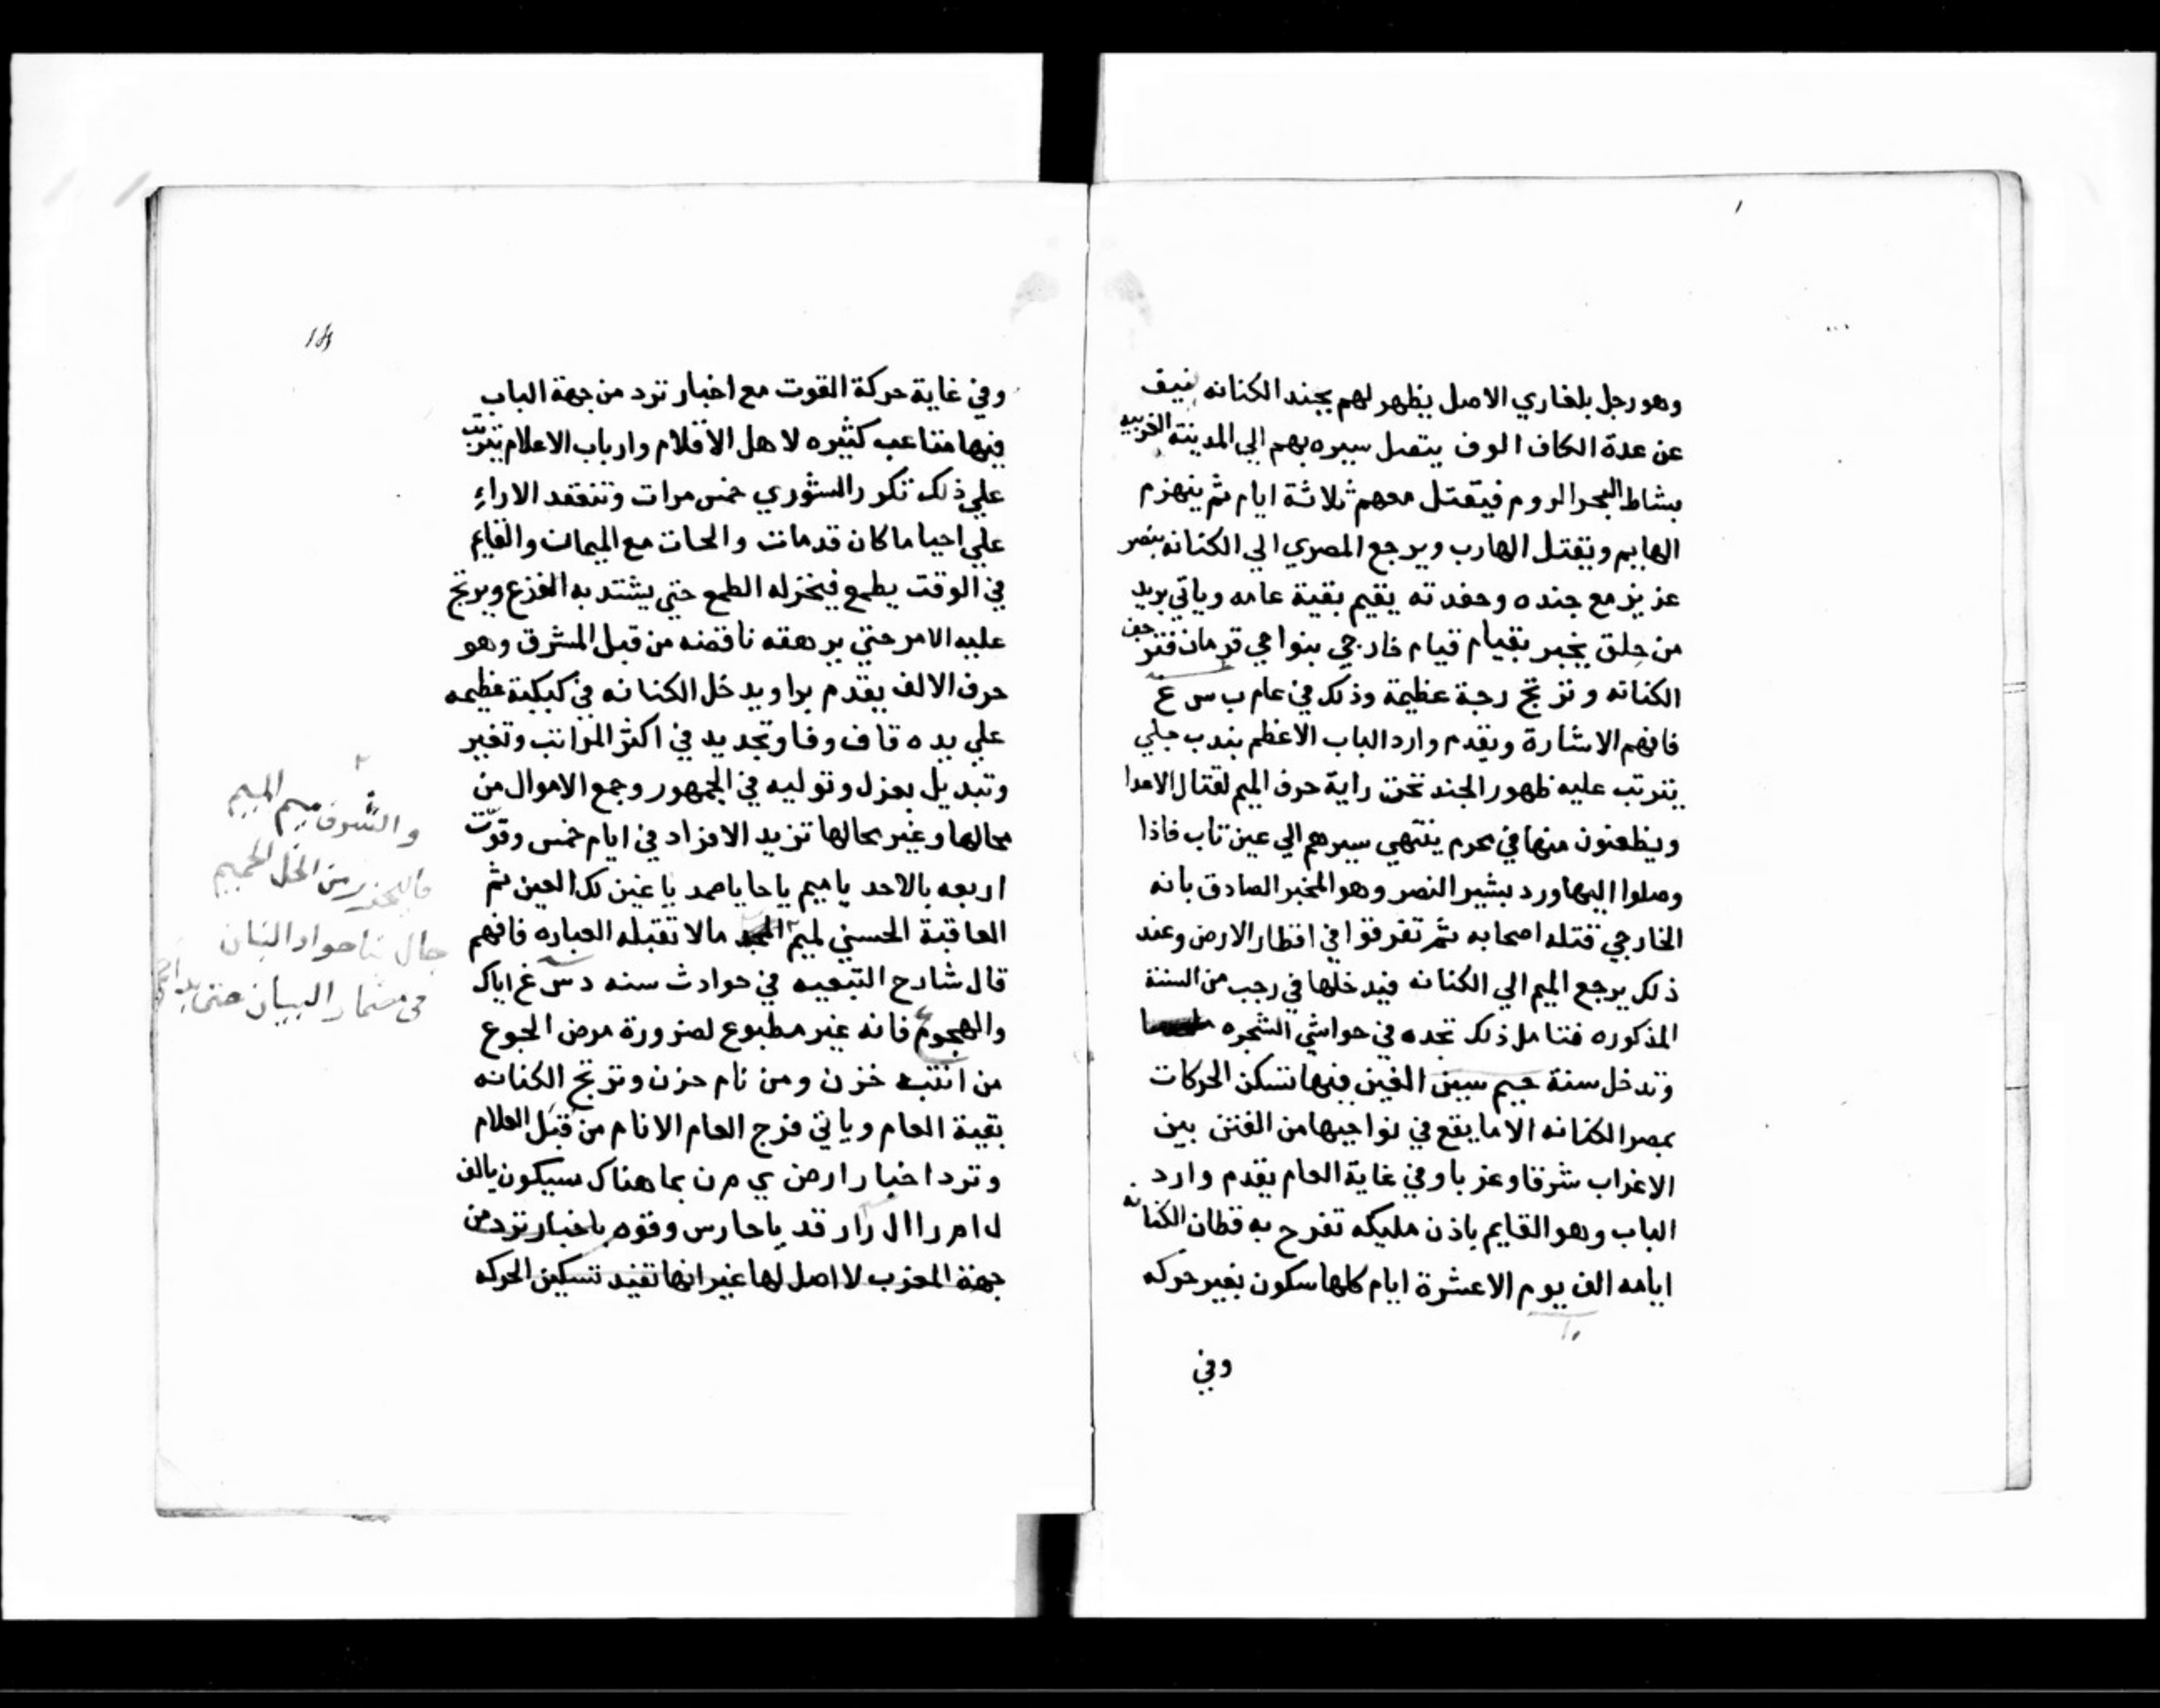 وهو رجل بلغاري الاصل يظهر لهم بجند الكنانه نيف
عن عدة الكاف الوف يتصل سيره بهم الي المدينة الغربيه
بشاط البحر الروم فيقتل معهم ثلاثة ايام ثم ينهزم
الهايم ويقتل الهارب ويرجع المصري الي الكنانه بنصر
عزيز مع جنده وحفدته يقيم بقية عامه وياتي بريد
من جلق يخبر بقيام قيام خارجي بنواحي قرمان فترجف
الكنانه وترتج رجة عظيمة وذلك في عام ب س غ
فافهم الاشارة ويقدم وارد الباب الاعظم بندب جلي
يترتب عليه ظهور الجند تحت راية حرف الميم لقتال الاعدا
ويظعنون منها في محرم ينتهي سيرهم الي عين تاب فاذا
وصلوا اليها ورد بشير النصر وهو المخبر الصادق بانه
الخارجي قتله اصحابه ثم تفرقوا في اقطار الارض وعند
ذلك يرجع الميم الي الكنانه فيدخلها في رجب من السنة
المذكوره فتامل ذلك تجده في حواشي الشجره
وتدخل سنة جيم سين الغين فيها تسكن الحركات
بمصر الكنانه الا ما يقع في نواحيها من الفتن بين
الاعراب شرقا وغربا وفي غاية العام يقدم وارد
الباب وهو القايم باذن مليكه تفرح به قطان الكنانه
ايامه الف يوم الا عشرة ايام كلها سكون بغير حركه
١٠
وفي
وفي غاية حركة القوت مع اخبار ترد من جهة الباب
فيها متاعب كثيره لاهل الاقلام وارباب الاعلام يترتب
علي ذلك تكرر الشوري خمس مرات وتنعقد الاراء
علي احيا ما كان قد مات والحات مع الميمات والقايم
في الوقت يطمع فيخزله الطمع حتي يشتد به الفزع ويرتج
عليه الامر حتي يرهقه ناقضه من قبل المشرق وهو
حرف الالف يقدم برا ويدخل الكنانه في كبكبة عظيمه
علي يده قاف وفا وتجديد في اكثر المراتب وتغير
وتبديل بعزل وتوليه في الجمهور وجمع الاموال من
محالها وغير محالها تزيد الافراد في ايام خمس وقوت
اربعه بالاحد يا ميم يا حا يا صمد يا غين لك العين ثم
العاقبة الحسني لميم ما لا تقبله العباره فافهم
قال شارح التبعيه في حوادث سنه د س غ اياك
والهجوع فانه غير مطبوع لضرورة مرض الجوع
من انتبه خزن ومن نام حزن وترتج الكنانه
بقية العام وياتي فرج العام الانام من قبل العلام
وترد اخبار ارض ي م ن بما هناك سيكون يالف
ل ا م ر ا ال ر ا ر قد يا حارس وقوه باخبار ترد من
جهة المغرب لا اصل لها غير انها تفيد تسكين الحركه
والشرف ميم الميم
من الخل الحميم
في مضمار البيان حتى